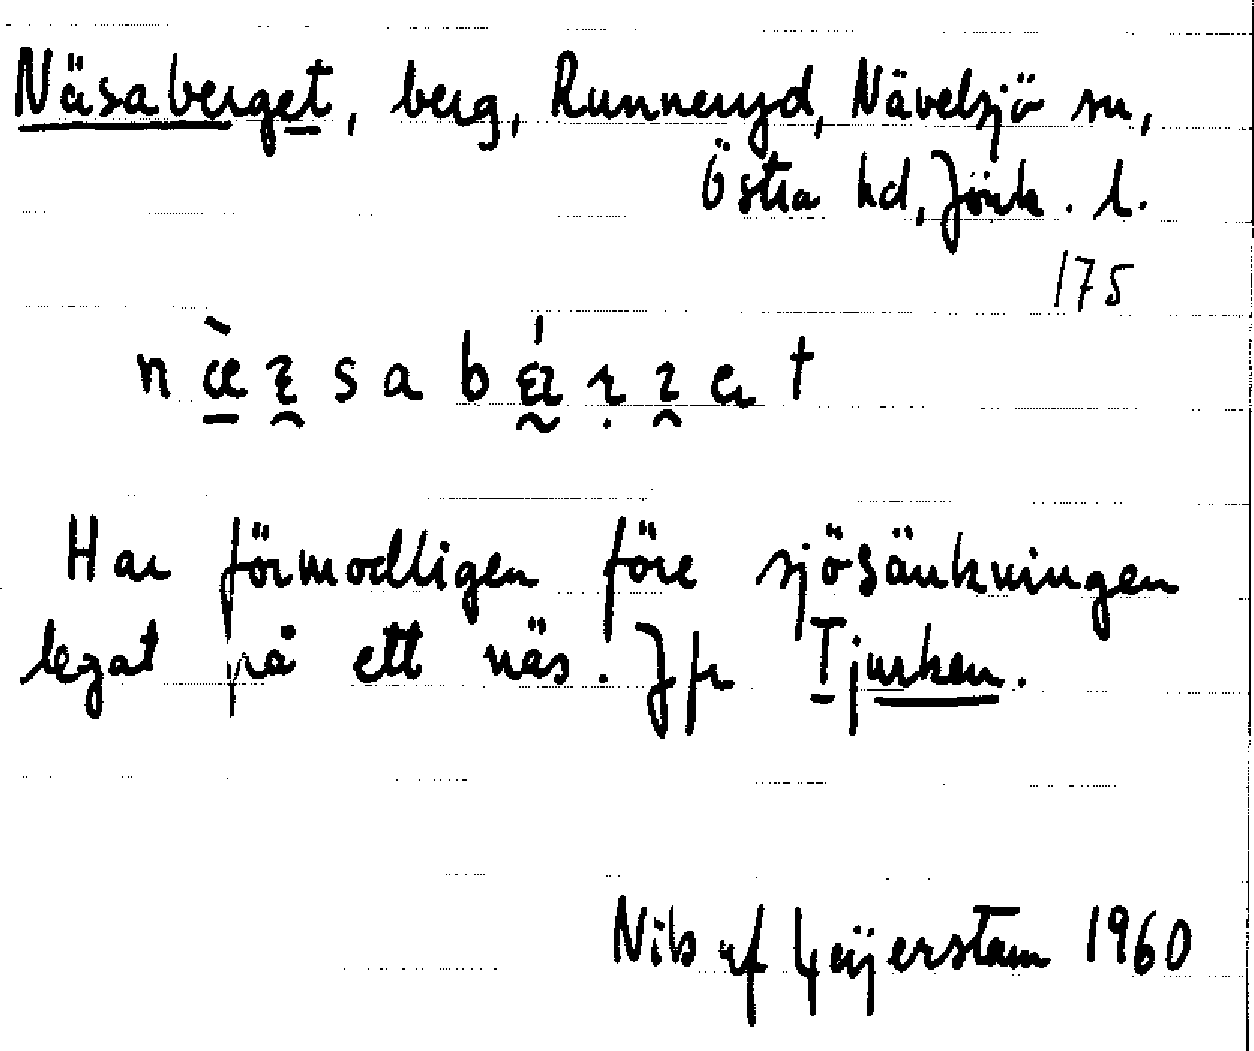 Näsaberget, berg, Runneryd, Nävelsjö sn,
Östra hd, Jönk. l.
175
Har förmodligen före sjösänkningen
legat på ett näs. Jfr Tjurken.
Nils af Geijerstam 1960